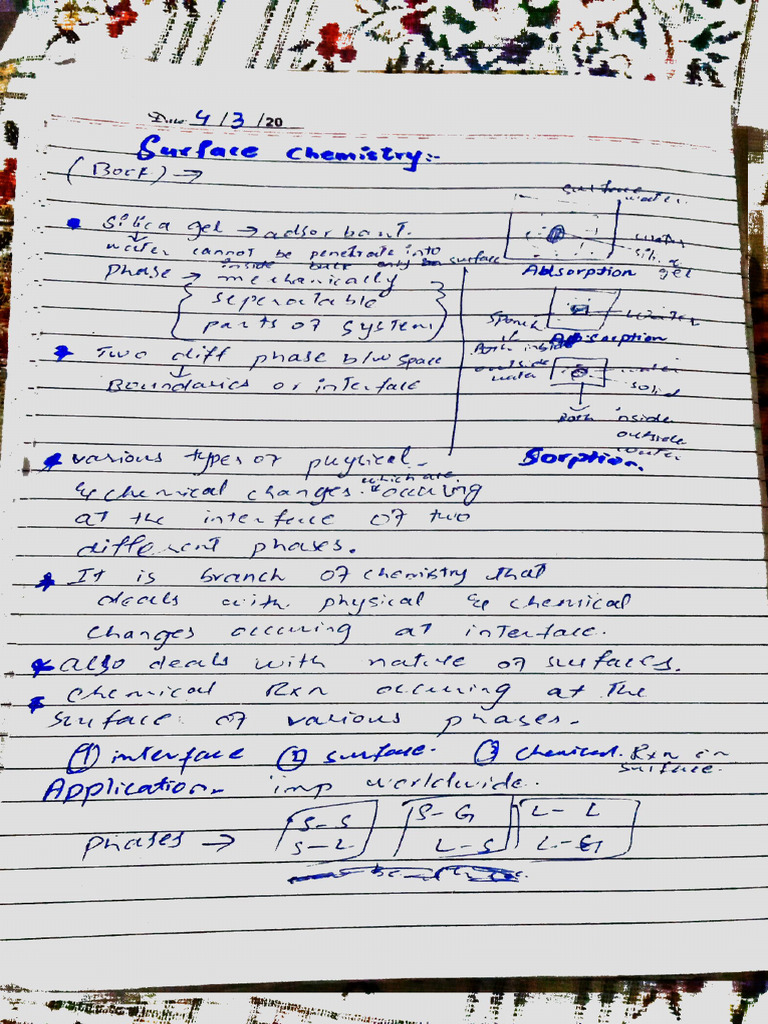 Date 4/3/20
Surface Chemistry:-
(Book) →
Silica gel → adsorbant.
water cannot be penetrate into
inside bulk only on surface
phase → mechanically
seperatable
parts of system
Two diff phase b/w space
Boundaries or interface
surface
water.
water
silica
gel
Adsorption
water
Absorption
Sponch
Both inside
outside
water
water
solid
Both inside
outside
water
Sorption.
various types of physical
& chemical changes. which are occuring
at the interface of two
different phases.
It is branch of chemistry that
deals with physical & chemical
changes occuring at interface.
also deals with nature of surfaces.
chemical Rxn occuring at the
surface of various phases.
① interface ② surface. ③ chemical. Rxn on
surface.
Application imp worldwide.
phases → S-S S-G L-L
S-L L-S L-G